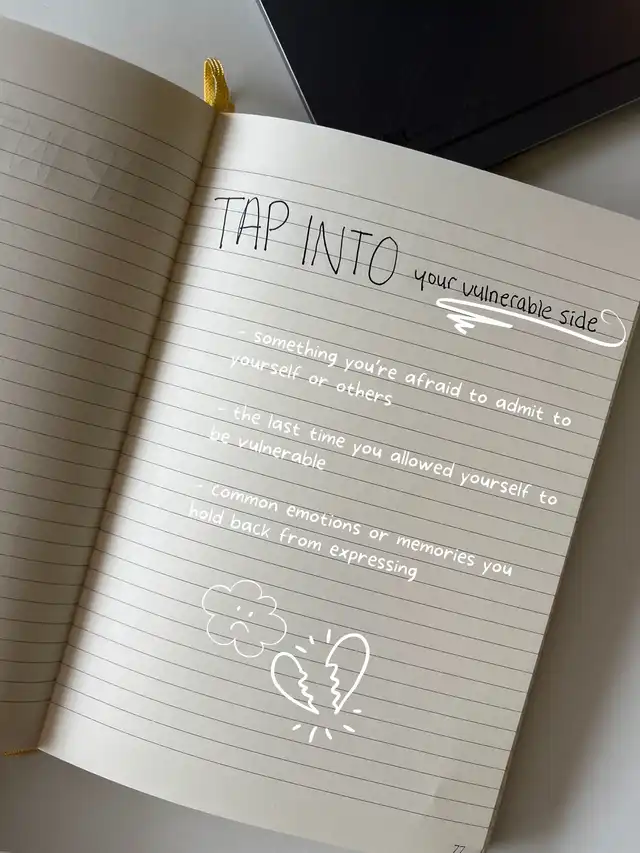 TAP INTO your vulnerable side
- something you're afraid to admit to
yourself or others
- the last time you allowed yourself to
be vulnerable
- common emotions or memories you
hold back from expressing
77